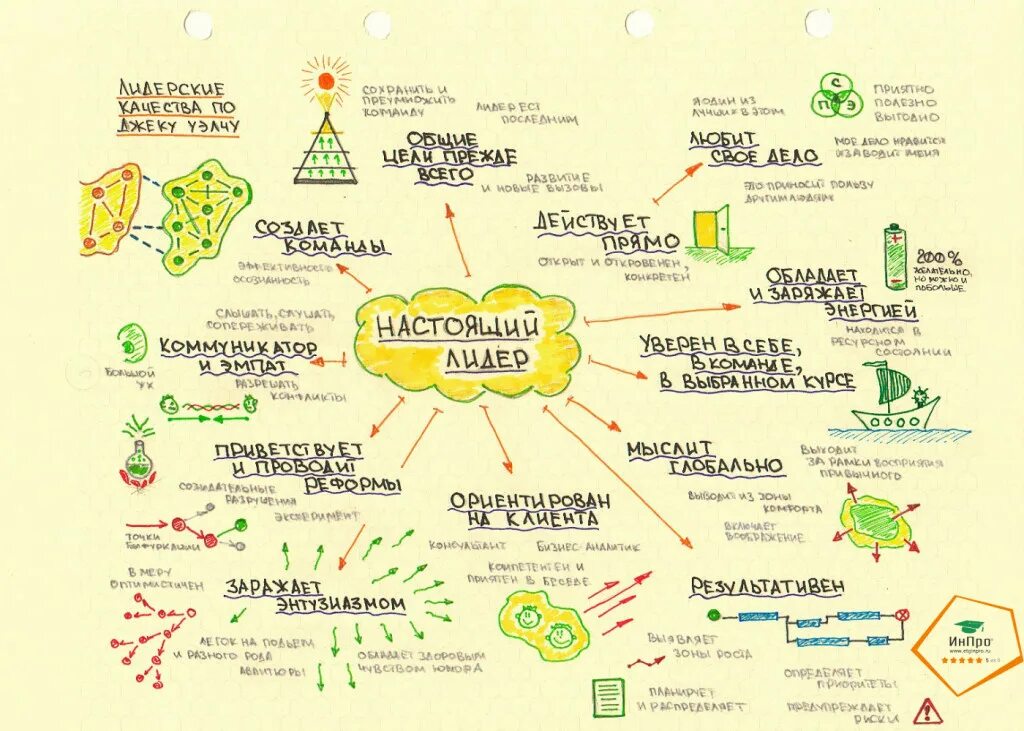 ЛИДЕРСКИЕ
КАЧЕСТВА ПО
ДЖЕКУ УЭЛЧУ
НАСТОЯЩИЙ
ЛИДЕР
СОХРАНИТЬ И
ПРЕУМНОЖИТЬ
КОМАНДУ
ЛИДЕР ЕСТ
ПОСЛЕДНИМ
ОБЩИЕ
ЦЕЛИ ПРЕЖДЕ
ВСЕГО
РАЗВИТИЕ
И НОВЫЕ ВЫЗОВЫ
Я ОДИН ИЗ
ЛУЧШИХ В ЭТОМ
ЛЮБИТ
СВОЕ ДЕЛО
С
П
Э
ПРИЯТНО
ПОЛЕЗНО
ВЫГОДНО
МОЕ ДЕЛО НРАВИТСЯ
И ЗАВОДИТ МЕНЯ
ЭТО ПРИНОСИТ ПОЛЬЗУ
ДРУГИМ ЛЮДЯМ
ДЕЙСТВУЕТ
ПРЯМО
ОТКРЫТ И ОТКРОВЕНЕН,
КОНКРЕТЕН
ОБЛАДАЕТ
И ЗАРЯЖАЕТ
ЭНЕРГИЕЙ
200%
ЖЕЛАТЕЛЬНО,
НО МОЖНО И
ПОБОЛЬШЕ.
НАХОДИТСЯ В
РЕСУРСНОМ
СОСТОЯНИИ
УВЕРЕН В СЕБЕ,
В КОМАНДЕ,
В ВЫБРАННОМ КУРСЕ
МЫСЛИТ
ГЛОБАЛЬНО
ВЫХОДИТ
ЗА РАМКИ ВОСПРИЯТИЯ
ПРИВЫЧНОГО
ВЫВОДИТ ИЗ ЗОНЫ
КОМФОРТА
ВКЛЮЧАЕТ
ВООБРАЖЕНИЕ
РЕЗУЛЬТАТИВЕН
ВЫЯВЛЯЕТ
ЗОНЫ РОСТА
ПЛАНИРУЕТ
И РАСПРЕДЕЛЯЕТ
ОПРЕДЕЛЯЕТ
ПРИОРИТЕТЫ
ПРЕДУПРЕЖДАЕТ
РИСКИ
ОРИЕНТИРОВАН
НА КЛИЕНТА
КОНСУЛЬТАНТ
БИЗНЕС-АНАЛИТИК
КОМПЕТЕНТЕН И
ПРИЯТЕН В БЕСЕДЕ
ЗАРАЖАЕТ
ЭНТУЗИАЗМОМ
В МЕРУ
ОПТИМИСТИЧЕН
ЛЕГОК НА ПОДЪЕМ
И РАЗНОГО РОДА
АВАНТЮРЫ
ОБЛАДАЕТ ЗДОРОВЫМ
ЧУВСТВОМ ЮМОРА
ПРИВЕТСТВУЕТ
И ПРОВОДИТ
РЕФОРМЫ
СОЗИДАТЕЛЬНЫЕ
РАЗРУШЕНИЯ
ЭКСПЕРИМЕНТ
ТОЧКИ
БИФУРКАЦИИ
СЛЫШАТЬ, СЛУШАТЬ,
СОПЕРЕЖИВАТЬ
КОММУНИКАТОР
И ЭМПАТ
БОЛЬШОЙ
УХ
РАЗРЕШАТЬ
КОНФЛИКТЫ
СОЗДАЕТ
КОМАНДЫ
ЭФФЕКТИВНОСТЬ
ОСОЗНАННОСТЬ
ИнПро
www.etginpro.ru